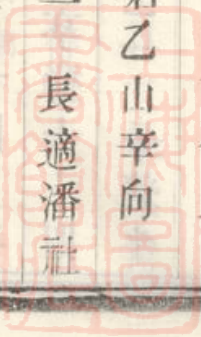 乙山辛向
長適潘社